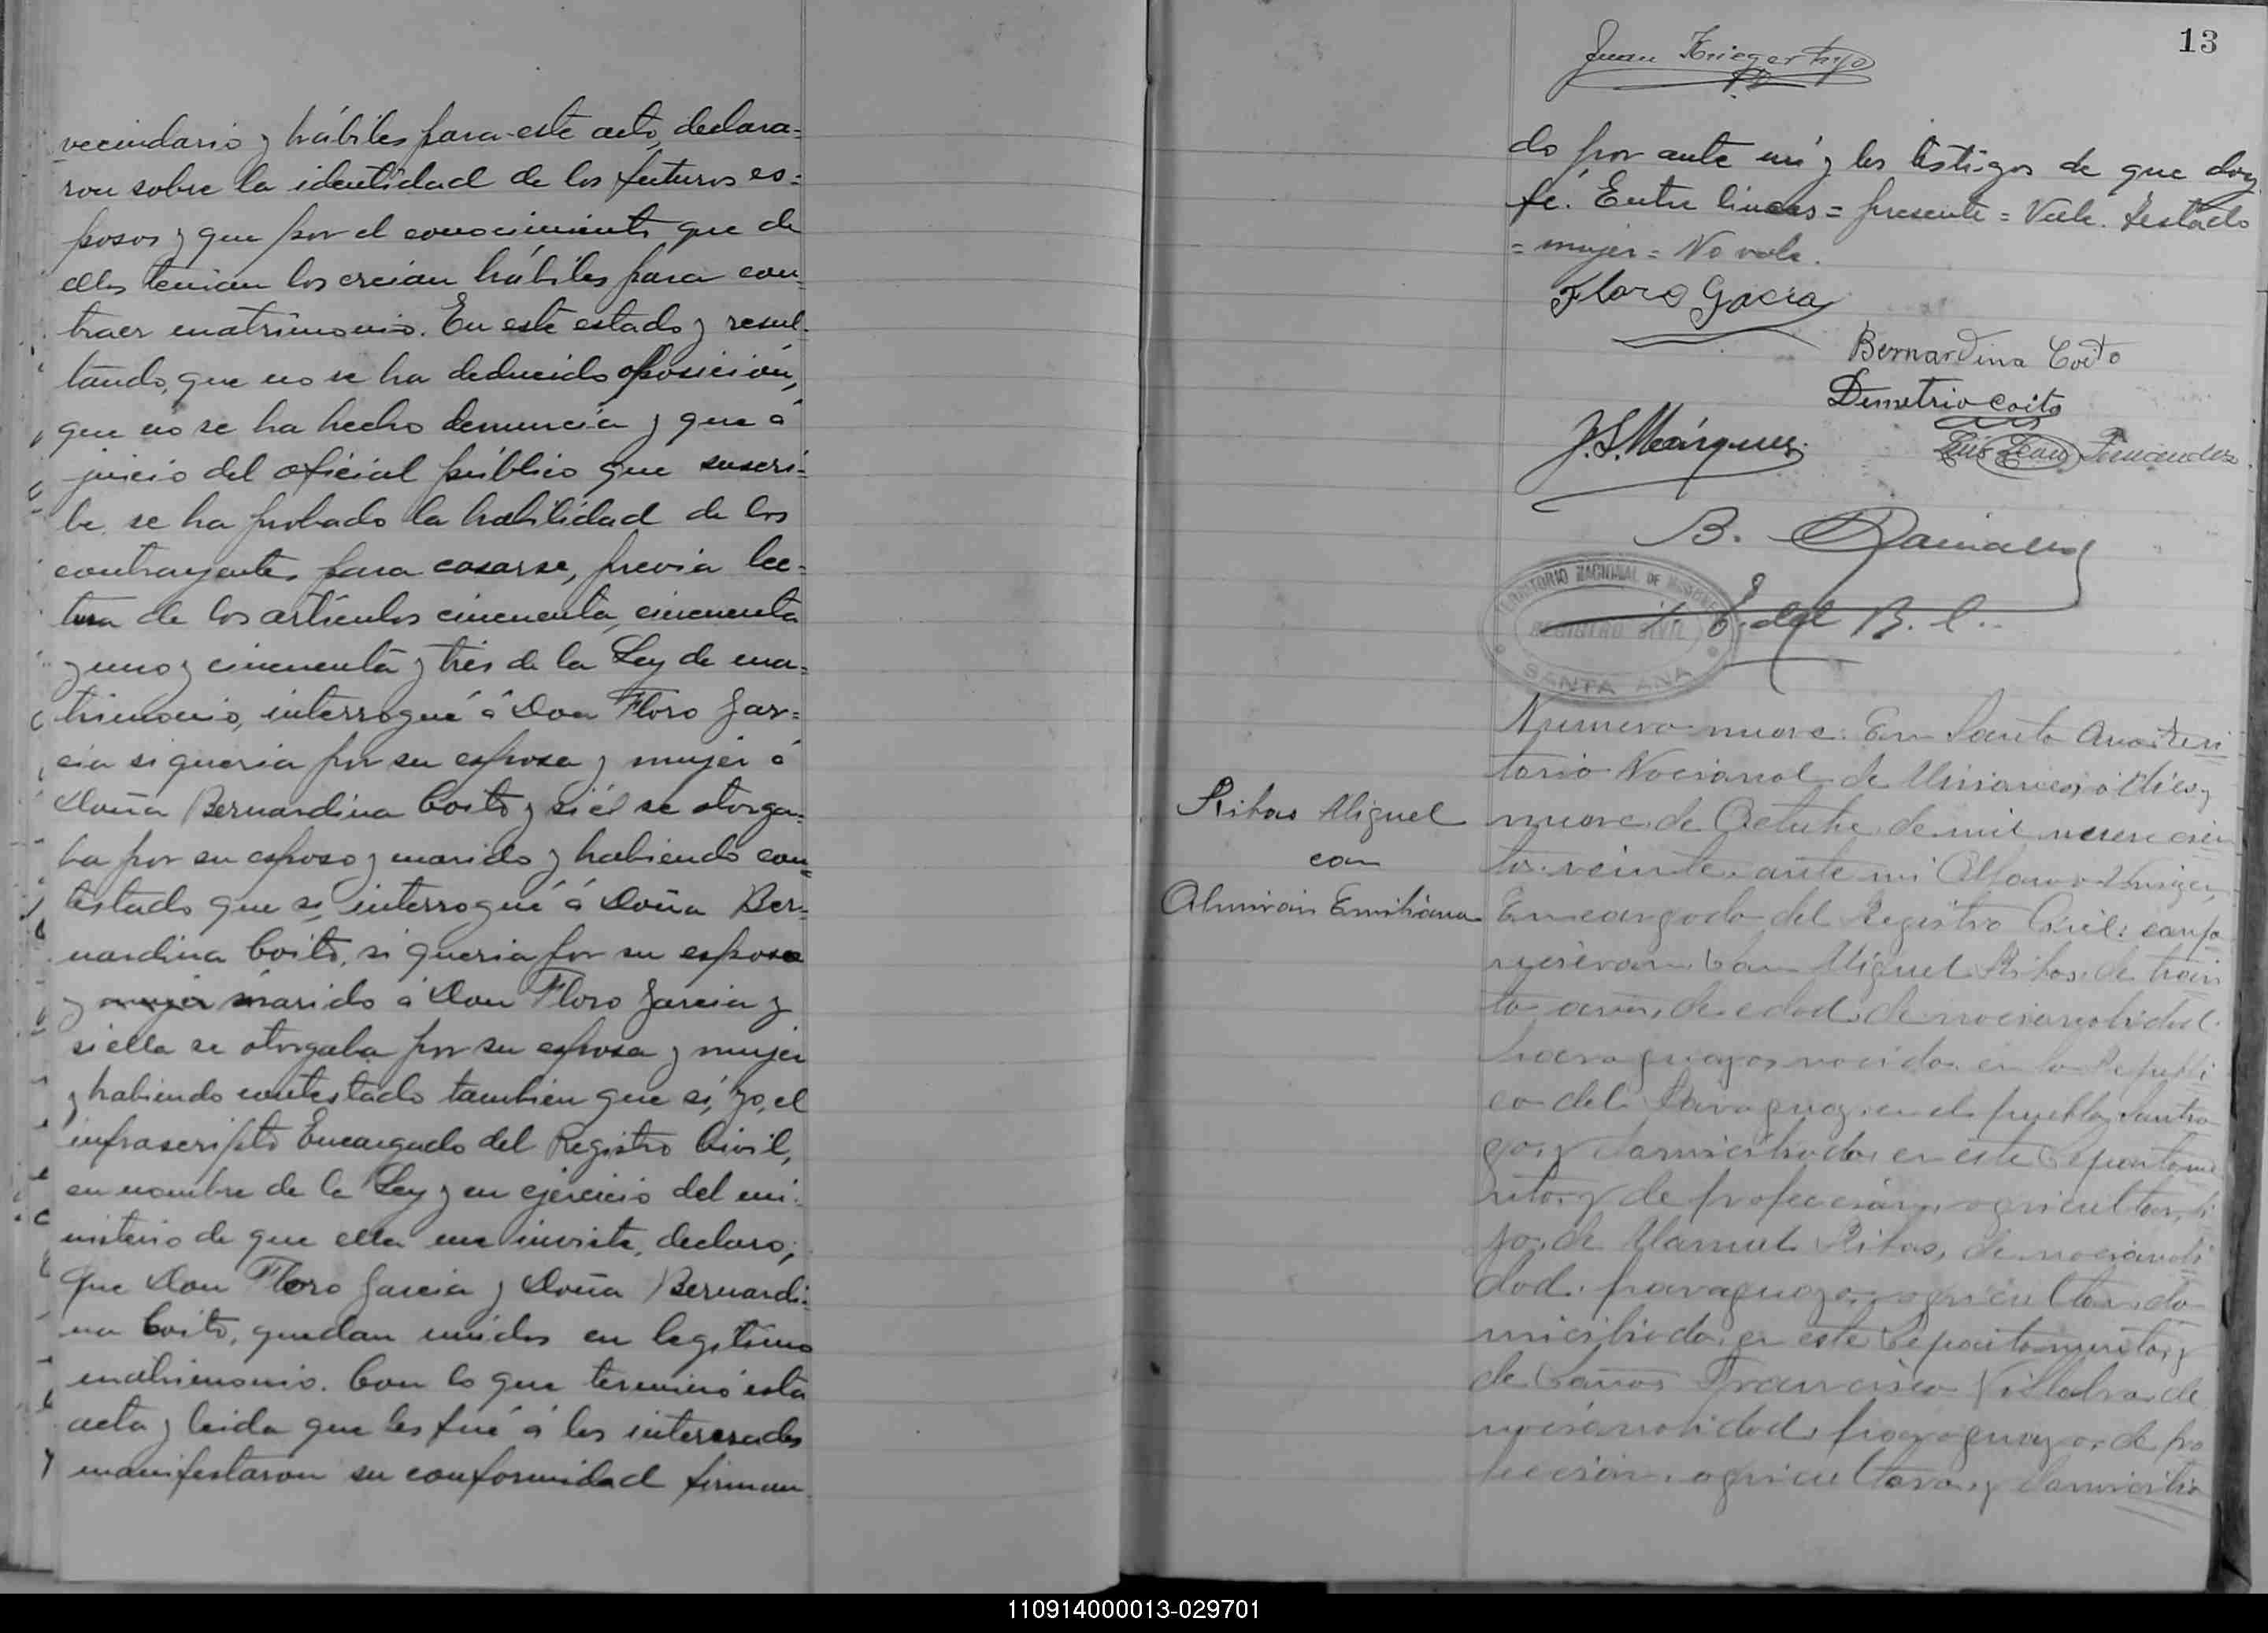 vecindario y hábiles para este acto, declara=
ron sobre la identidad de los futuros es=
posos y que por el conocimiento que de
ellos tenian los creian hábiles para con=
traer matrimonio. En este estado y resul-
tando, que no se ha deducido oposición,
que no se ha hecho denuncia y que á
juicio del oficial público que suscri=
be se ha probado la habilidad de los
contrayentes para casarse, previa lec=
tura de los artículos cincuenta, cincuenta
y uno y cincuenta y tres de la Ley de ma=
trimonio, interrogué á Don Floro Gar=
cia si queria por su esposa y mujer á
Doña Bernardina Coito y si él se otorga=
ba por su esposo y marido y habiendo con=
testado que si, interrogué á Doña Ber=
nardina Coito, si queria por su esposo
y mujer marido á Don Floro Garcia y
si ella se otorgaba por su esposa y mujer
y habiendo contestado tambien que si, yo, el
infrascripto Encargado del Registro Civil,
en nombre de la Ley y en ejercicio del mi-
nisterio de que ella me inviste, declaro;
que Don Floro Garcia y Doña Bernardi-
na Coito, quedan unidos en legítimo
matrimonio. Con lo que terminó esta
acta y leida que les fué á los interesados
manifestaron su conformidad firman
13
Juan Krieger hijo
do por ante mí y los testigos de que doy
fé. Entre lineas = presente = Vale. Testado
= mujer = No vale.
Floro Gacia
Bernardina Coito
Demetrio Coito
J. S. Márquez
Luis Fernandez
B.
E. del R. C.
TERRITORIO NACIONAL DE MISIONES
REGISTRO CIVIL
SANTA ANA
Ribas Miguel
con
Almirón Emiliana
Numero nueve: En Santa Ana, Teri
torio Nacional de Misiones, á dies y
nueve de Octubre de mil novecien
tos veinte, ante mi Alfonso
Encargado del Registro Civil: compa
recieron Don Miguel Ribas, de trein
ta años, de edad, de nacionalidad
paraguayo, nacido en la Republi
ca del Paraguay, en el pueblo Santia
go, y domiciliado en este Departame
nto, y de profeccion, agricultor, hi
jo, de Manuel Ribas, de nacionali
dad, paraguayo, agricultor, do
miciliado, en este Departamento, y
de Doña Francisca Villalva, de
nacionalidad, paraguaya, de pro
feccion, agricultora, y domicilia
110914000013-029701